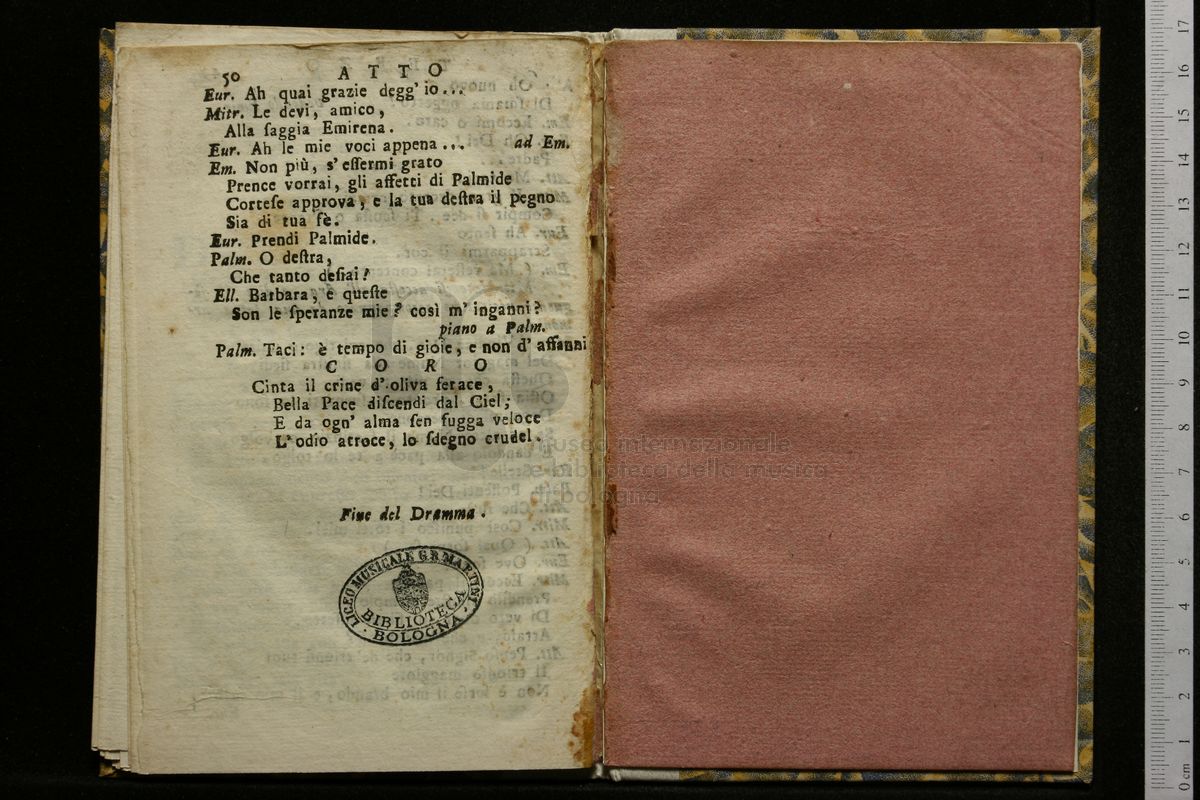 50 ATTO
Eur. Ah quai grazie degg' io...
Mitr. Le devi, amico,
Alla ſaggia Emirena.
Eur. Ah le mie voci appena... ad Em.
Em. Non più, s' eſſermi grato
Prence vorrai, gli affetti di Palmide
Corteſe approva, e la tua deſtra il pegno
Sia di tua fè.
Eur. Prendi Palmide.
Palm. O deſtra,
Che tanto deſiai!
Ell. Barbara, e queſte
Son le ſperanze mie? così m' inganni?
piano a Palm.
Palm. Taci: è tempo di gioie, e non d' affanni
CORO
Cinta il crine d' oliva ferace,
Bella Pace diſcendi dal Ciel;
E da ogn' alma ſen fugga veloce
L' odio atroce, lo ſdegno crudel.
Fine del Dramma.
LICEO MUSICALE G.B. MARTINI
BIBLIOTECA
· BOLOGNA ·
museo internazionale
e biblioteca della musica
di bologna
0 cm 1 2 3 4 5 6 7 8 9 10 11 12 13 14 15 16 17